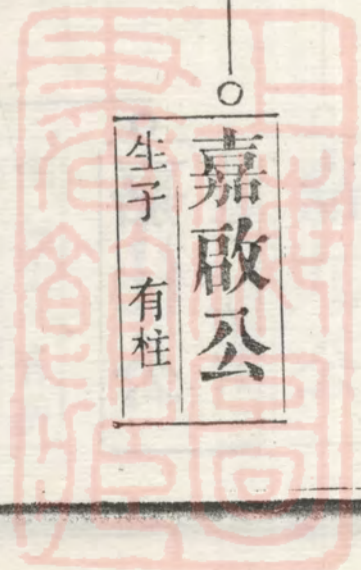 嘉啟公
生子 有柱